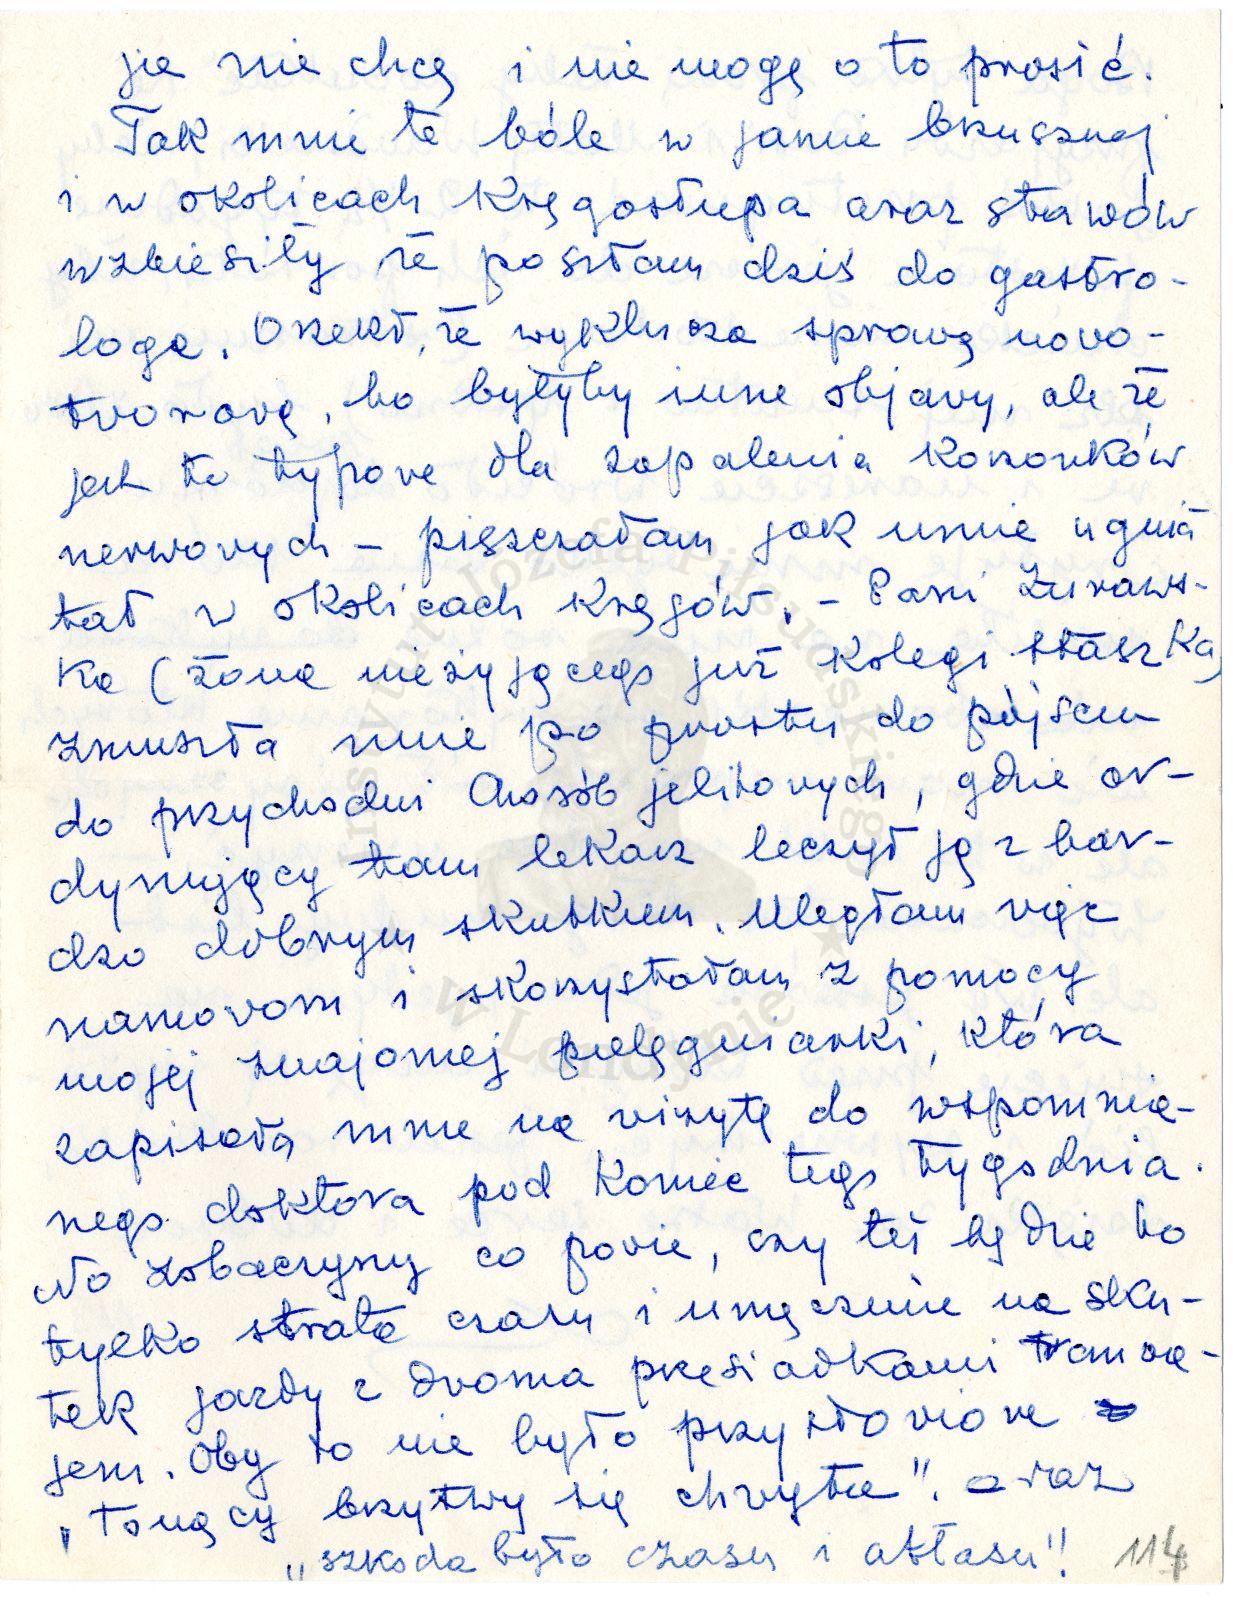 je nie chcę i nie mogę o to prosić.
Tak mnie te bóle w jamie brzusznej
i w okolicach kręgosłupa oraz stawów
wzbiesiły że poszłam dziś do gastro-
loga. Orzekł, że wyklucza sprawę nowo-
tworową, bo byłyby inne objawy, ale że
jest to typowe dla zapalenia korzonków
nerwowych – piszczałam jak mnie ugnia
tał w okolicach kręgów. – Pani Żuraws-
ka (żona nieżyjącego już kolegi Staszka,
zmusiła mnie po prostu do pójścia
do przychodni chorób jelitowych, gdzie or-
dynujący tam lekarz leczył ją z bar-
dzo dobrym skutkiem. Uległam więc
namowom i skorzystałam z pomocy
mojej znajomej pielęgniarki, która
zapisała mnie na wizytę do wspomnia-
nego doktora pod koniec tego tygodnia.
No zobaczymy co powie, czy też będzie to
tylko strata czasu i umęczenie na sku-
tek jazdy z dwoma przesiadkami tramwa-
jem. Oby to nie było przysłowiowe
„Tonący brzytwy się chwyta”! oraz
„szkoda było czasu i atłasu”! 114
Instytut Józefa Piłsudskiego
w Londynie